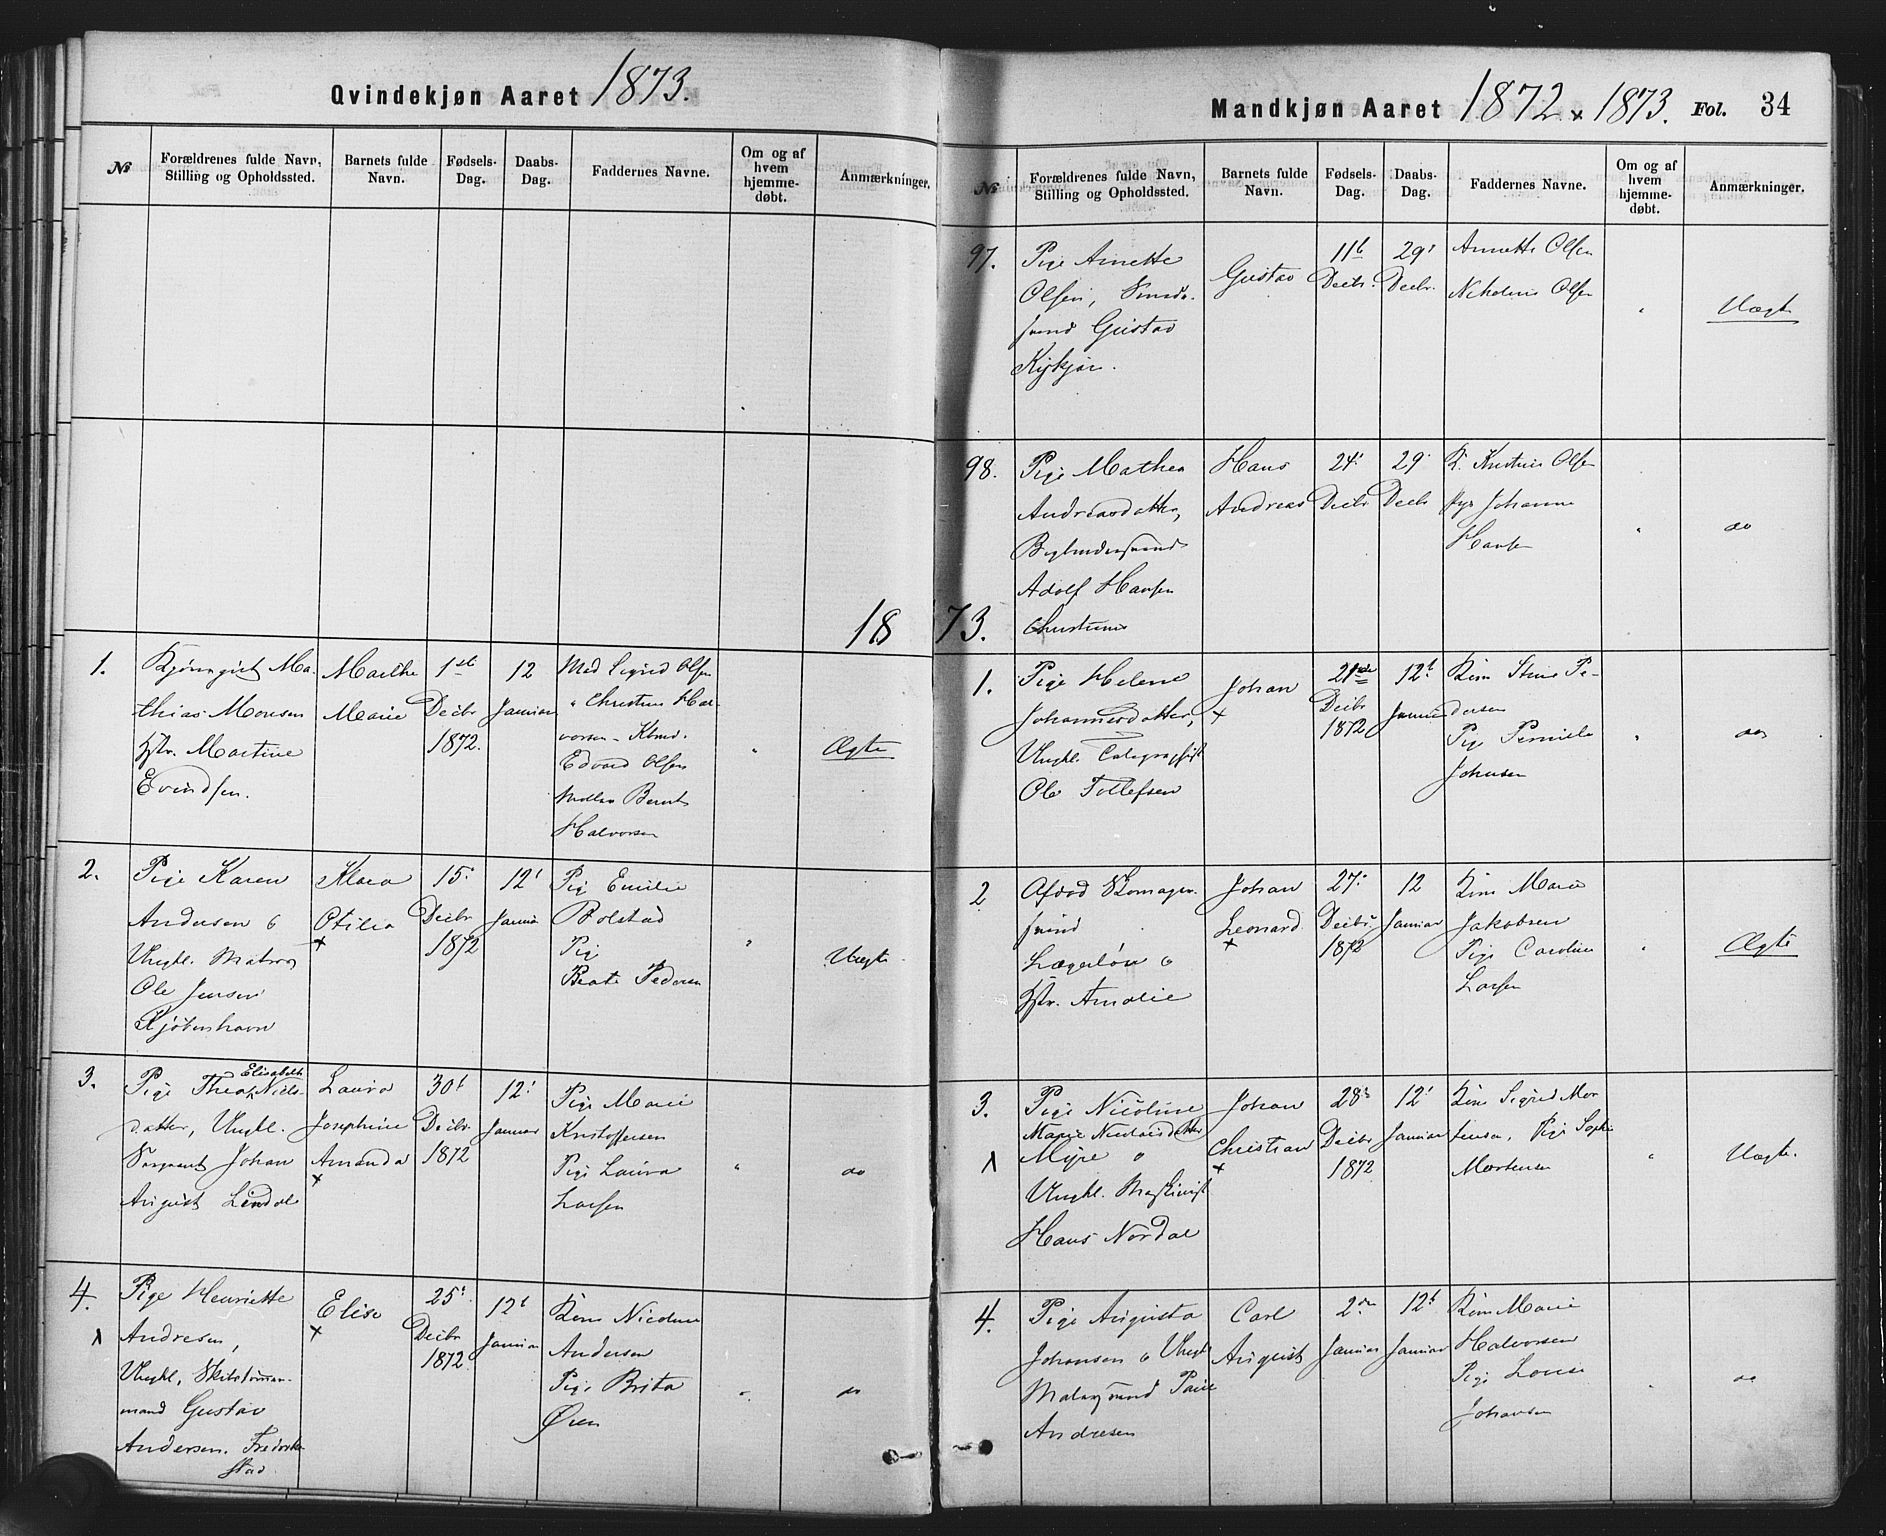 Qvindekjøn Aaret 1873.
№
Forældrenes fulde Navn, Stilling og Opholdssted.
Barnets fulde Navn.
Fødsels-Dag.
Daabs-Dag.
Faddernes Navne.
Om og af hvem hjemme-døbt.
Anmærkninger.
1873.
1.
Mathias Monsen
Martine
Evindsen.
Marthe
Marie
1ste
Decbr
1872.
12
Januar
Mad Sigrid Olsen
" Christine Hal-
vorsen
Edvard Olsen
Bernt
Halvorsen
"
Ægte
2.
Pige Karen
Andersen &
Ungkl. Matros
Ole Jensen
Kjøbenhavn
Klara
Otilia
+
15.
Decbr
1872
12t
Januar
Pig Emilie
Bolstad
Pig
Beate Pedersen
"
Uægte
3.
Elisabeth
Pige Thea Niels-
datter, Ungkl.
Sergeant Johan
August Lindal
Laura
Josephine
Amanda
+
30t
Decbr
1872
12t
Januar
Pige Marie
Kristoffersen
Pige Laura
Larsen
"
do
4.
Pige Henriette
Andresen,
Ungkl.
mand Gustav
Andersen. Fredrik-
stad
Elise
+
25t
Decbr
1872
12t
Januar
Kone Nicoline
Andersen
Pige Brita
Øien
"
do
Mandkjøn Aaret 1872 + 1873. Fol. 34
№
Forældrenes fulde Navn, Stilling og Opholdssted.
Barnets fulde Navn.
Fødsels-Dag.
Daabs-Dag.
Faddernes Navne.
Om og af hvem hjemme-døbt.
Anmærkninger.
97.
Pige Annette
Olsen, Smede-
svend Gustav
Gustav
11te
Decbr.
29t
Decbr.
Annette Olsen
Olsen
"
Uægte
98.
Pige Mathea
Andreasdatter,
Adolf Hansen
Hans
Andreas
24t
Decbr
29t
Decbr
K. Olsen
Pige Johanne
Hansen
"
do
1.
Pige Helene
Johannesdatter,
Ungkl.
Ole Tollefsen
Johan
+
21de
Decbr
1872
12t
Januar
Kone Stine Pe-
dersen
Pige Pernille
Johnsen
"
do
2
Skomager-
svend
&
Amalie
Johan
Leonard
+
27t
Decbr
1872
12
Januar
Kone Marie
Jakobsen
Pige Caroline
Larsen
"
Ægte
3.
Pige Nicoline
Marie
Myre &
Ungkl. Maskinist
Hans Nordal
Johan
Christian
+
28t
Decbr
1872
12t
Januar
Kone Sigrid Mor-
tensen, Pige Sophie
Mortensen
"
Uægte.
4.
Pige Augusta
Johansen & Ungkl
Malersvend
Andresen
Carl
August
2den
Januar
12t
Januar
Kone Marie
Halvorsen
Pige Lovise
Johansen
"
do